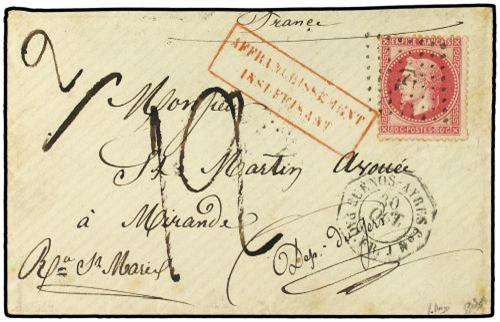 France
2
AFFRANCHISSEMENT
INSUFFISANT
EMPIRE FRANÇAIS
80C POSTES 80C
Monsieur
St Martin Avoué
à Mirande
Dep. du Gers
Rza Sta Maria
BUENOS-AYRES
20
OCT.
69